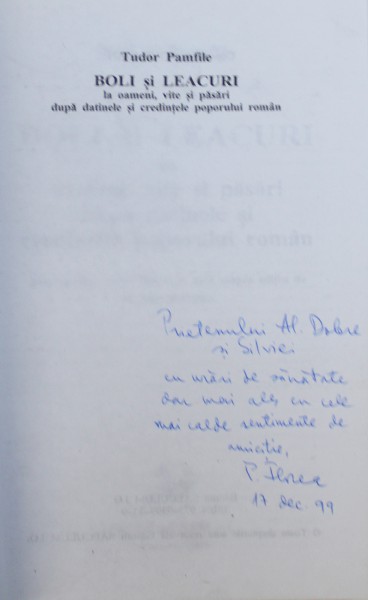 Tudor Pamfile
BOLI și LEACURI
la oameni, vite și păsări
după datinele și credințele poporului român
Prietenului Al. Dobre
și Silviei
cu urări de sănătate
dar mai ales cu cele
mai calde sentimente de
amiciție,
P. Florea
17 dec. 99